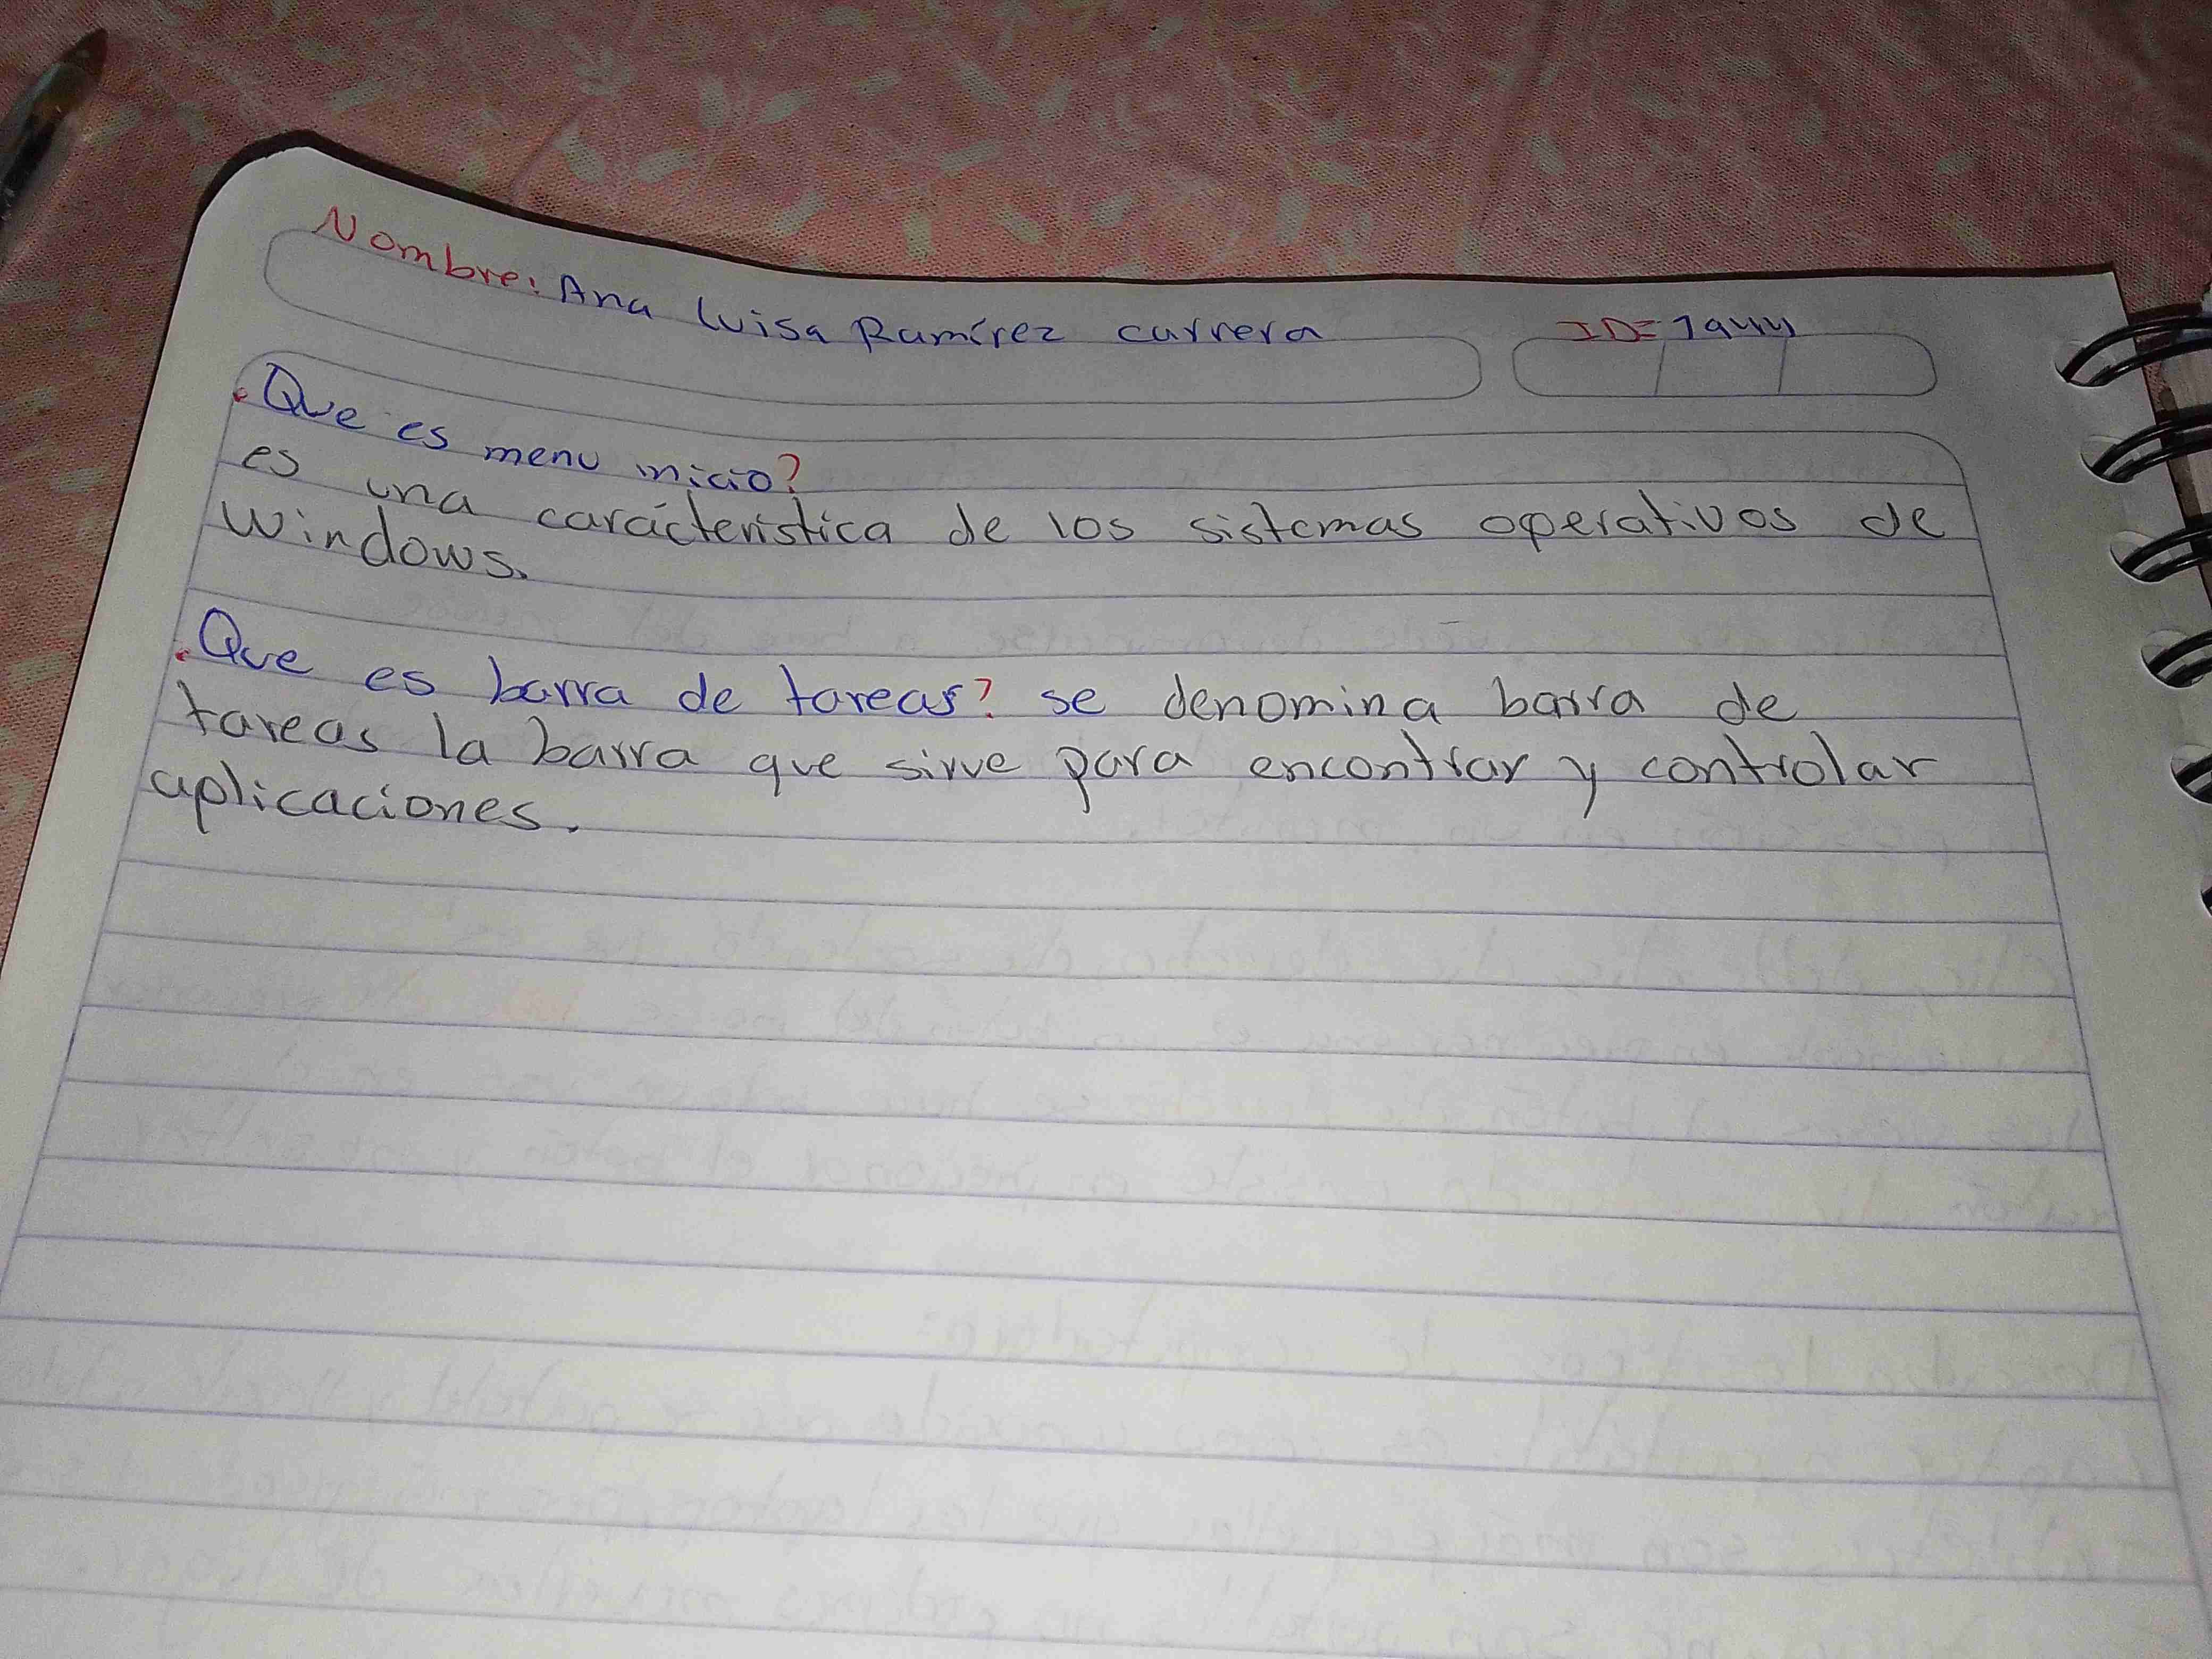 Nombre: Ana Luisa Ramírez carrera ID= 1944
.Que es menu inicio?
es una carácterística de los sistemas operativos de
Windows.
.Que es barra de tareas? se denomina barra de
tareas la barra que sirve para encontrar y controlar
aplicaciones.